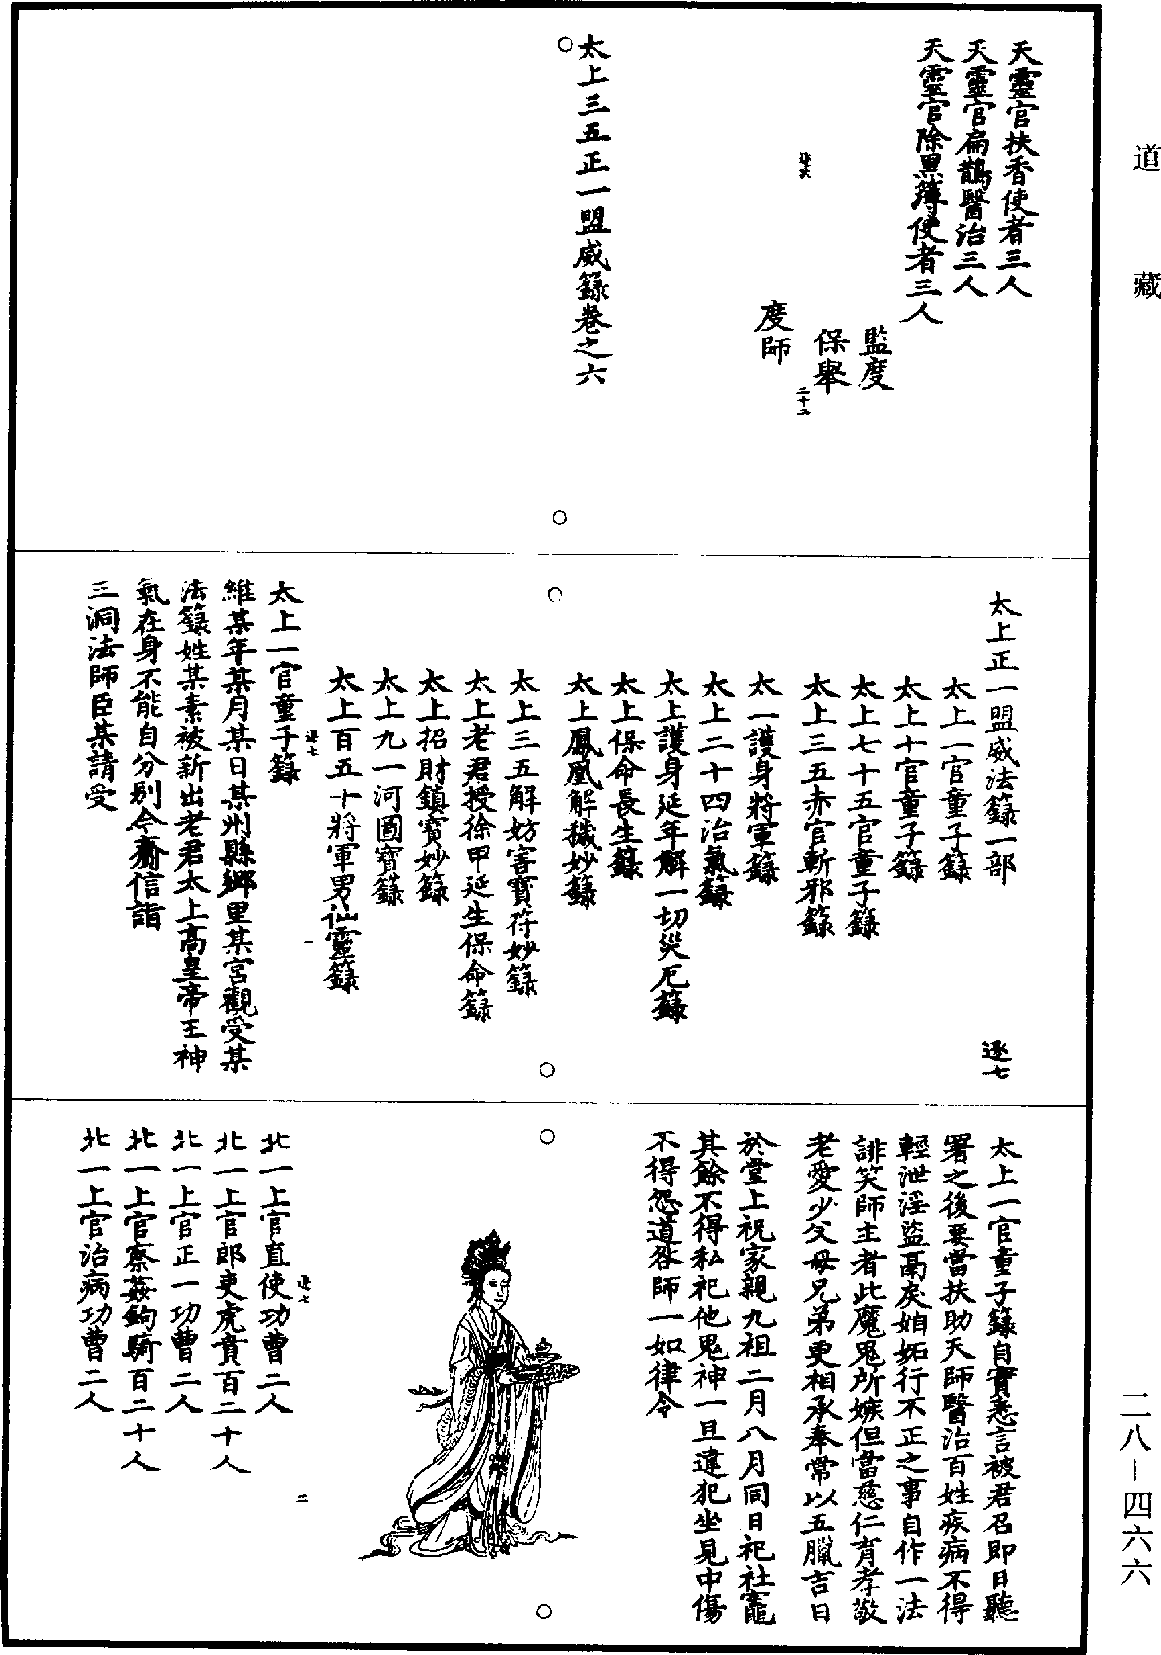 道藏
天靈官扶香使者三人
天靈官扁鵲醫治三人
天靈官除黑簿使者三人
監度
保舉
逐六
二十二
度師
太上三五正一盟威籙卷之六
太上正一盟威法籙一部
逐七
太上一官童子籙
太上十官童子籙
太上七十五官童子籙
太上三五赤官斬邪籙
太一護身將軍籙
太上二十四治氣籙
太上護身延年解一切災厄籙
太上保命長生籙
太上鳳凰解穢妙籙
太上三五解妨害寶符妙籙
太上老君授徐甲延生保命籙
太上招財鎮寶妙籙
太上九一河圖寶籙
太上百五十將軍男仙靈籙
逐七
一
太上一官童子籙
維某年某月某日某州縣鄉里某宮觀受某
法籙姓某素被新出老君太上高皇帝王神
氣在身不能自分別今齎信詣
三洞法師臣某請受
太上一官童子籙自實悉言被君召即日聽
署之後要當扶助天師醫治百姓疾病不得
輕泄淫盜高戾妬行不正之事自作一法
誹笑師主者此魔鬼所嫉但當慈仁育孝敬
老愛少父母兄弟更相承奉常以五臘吉日
於堂上祝家親九祖二月八月同日祀社竈
其餘不得私祀他鬼神一旦違犯坐見中傷
不得怨道咎師一如律令
逐七
二
北一上官直使功曹二人
北一上官郎吏虎賁百二十人
北一上官正一功曹二人
北一上官察姦鉤騎百二十人
北一上官治病功曹二人
二八-四六六